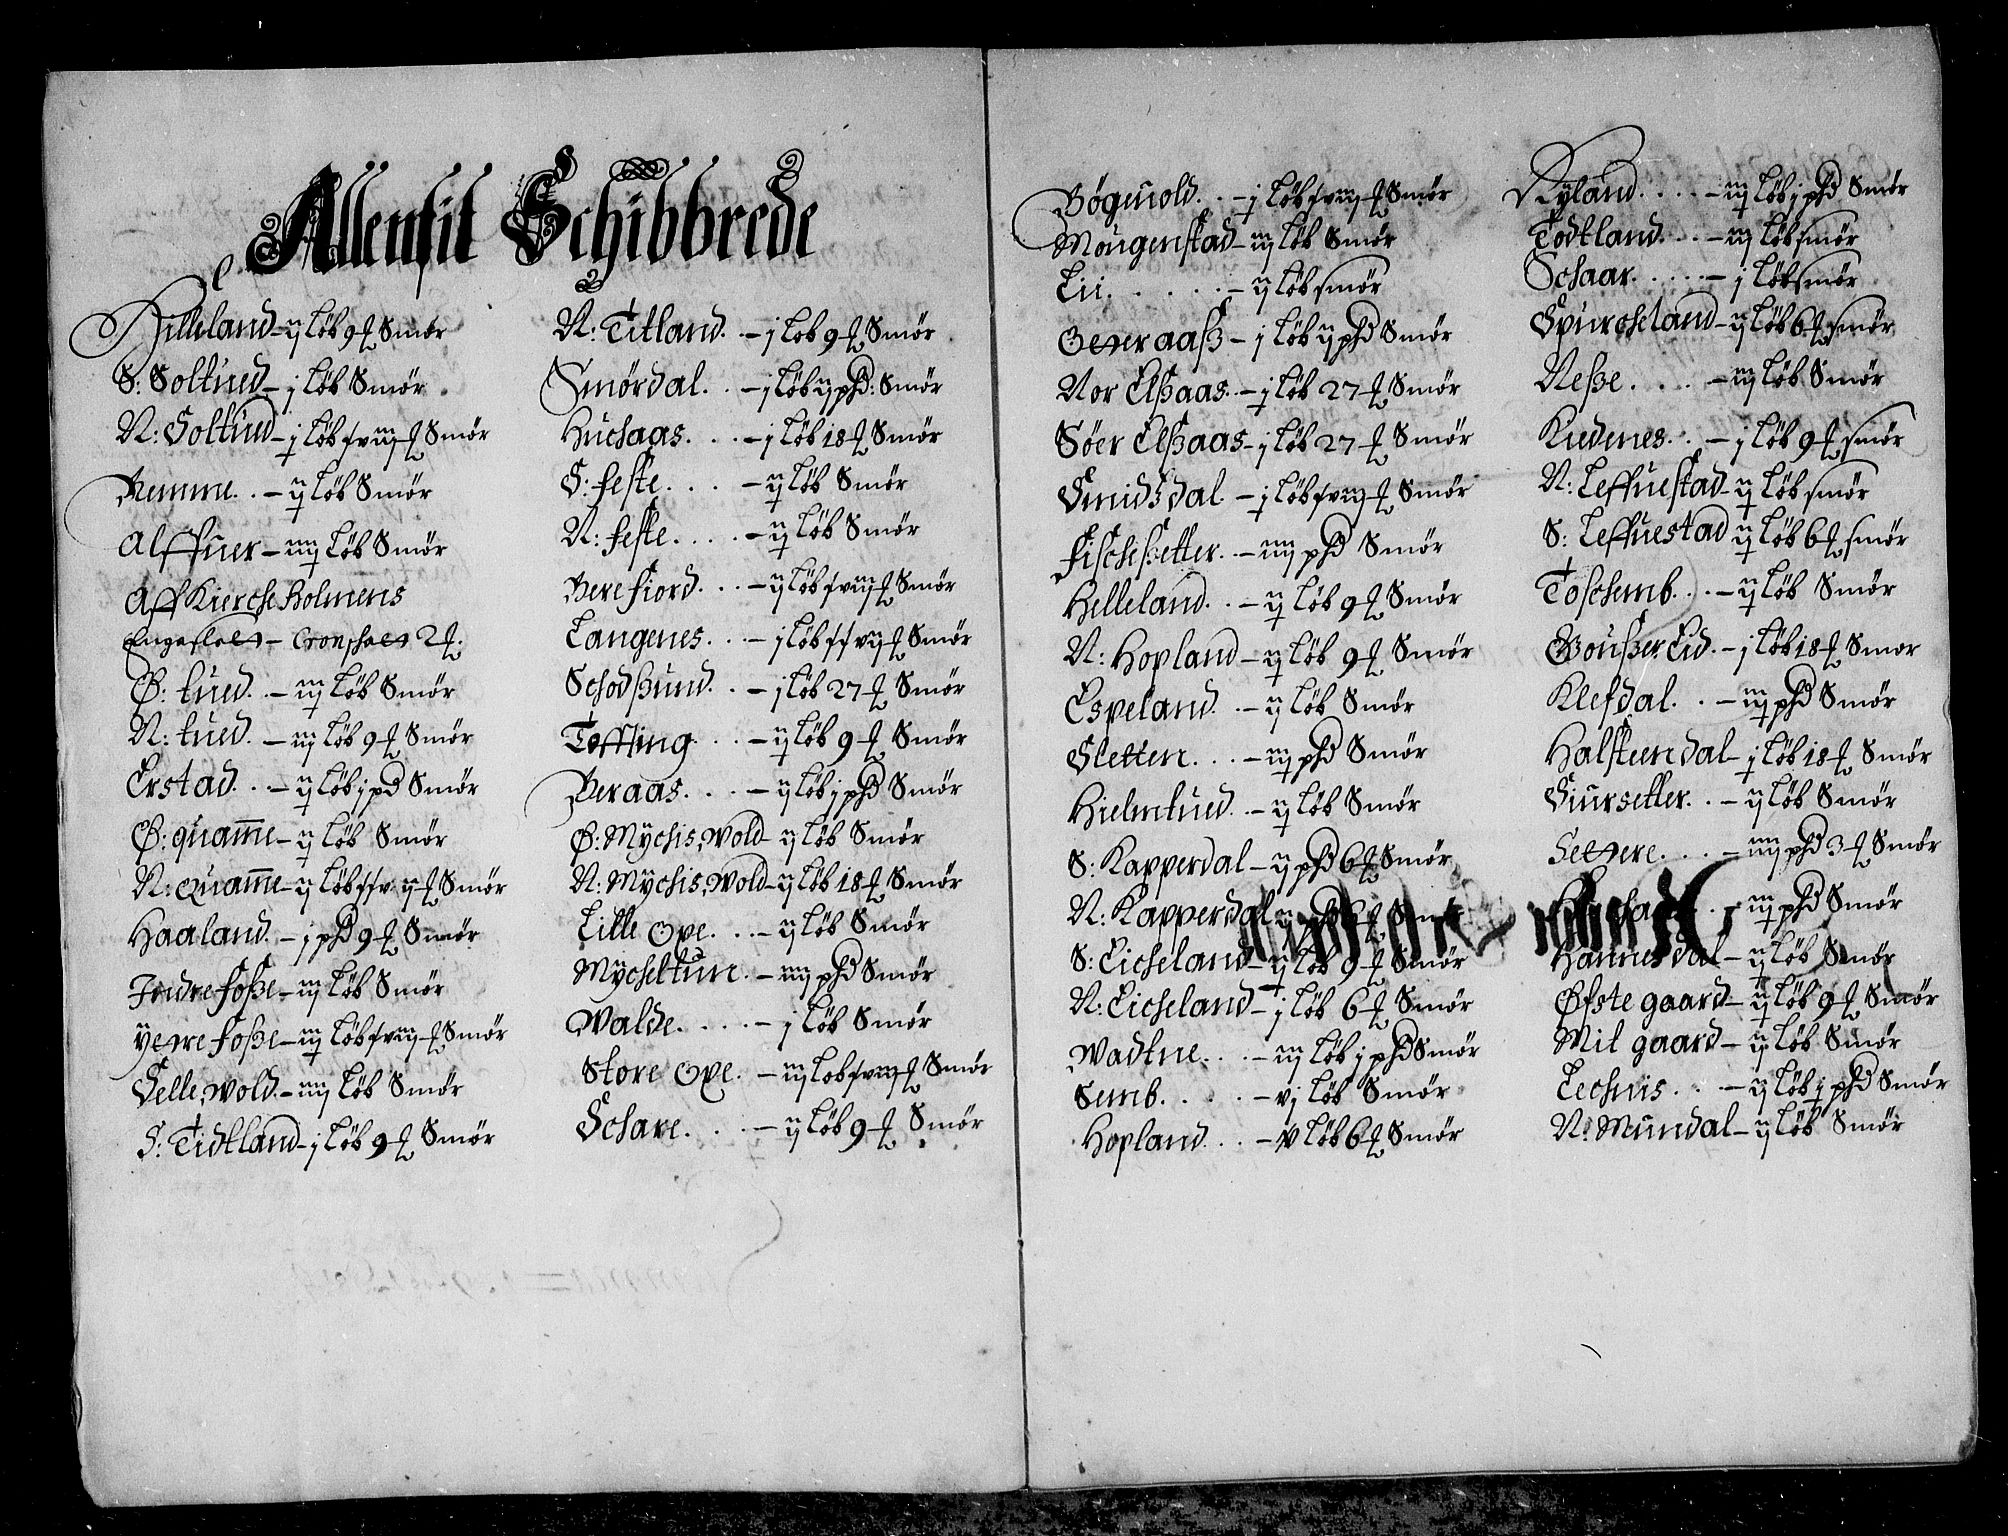 Allenfit Schibbrede
Hilleland – ij Løb 9 ℔ Smør
S: Soltued – j Løb Smør
N: Soltued – j Løb xviij ℔ Smør
Remme . . – ij Løb Smør
Alffuer – iiij Løb Smør
Aff Kierche Holmens
Ø: tued . – iij Løb Smør
N: tued . – iij Løb 9 ℔ Smør
Erstad . . – ij Løb j pd Smør
Ø: quame – ij Løb Smør
N: quame – ij Løb xxvij ℔ Smør
Haaland – j phd 9 ℔ Smør
Indre foße – iij Løb Smør
Yttre foße – iij Løb xviij ℔ Smør
Selle, wold – iiij Løb Smør
S: Tidtland – j Løb 9 ℔ Smør
N: Titland . – j Løb 9 ℔ Smør
Smørdal . . – j Løb ij phd: Smør
Huchaas . . . – j Løb 18 ℔ Smør
S: feste . . . . – ij Løb Smør
N: feste . . . . – ij Løb Smør
Berefiord . . . – ij Løb xviij ℔ Smør
Langenes . . . – j Løb xxvij ℔ Smør
Schodßund . . – j Løb 27 ℔ Smør
Toffting . . . – ij Løb 9 ℔ Smør
Beraas . . . . – ij Løb j phd Smør
Ø: Mychis, wold – ij Løb Smør
N: Mychis, wold – ij Løb 18 ℔ Smør
Lille Ope . . . – ij Løb Smør
Mycheltun . – iiij phd Smør
Walde . . . . – j Løb Smør
Store Ope . – iij Løb xviij ℔ Smør
Schare . . . – ij Løb 9 ℔ Smør
Bøgeuold . . – j Løb xviij ℔ Smør
Mougenstad – iij Løb Smør
Lii . . . . . . – ij Løb smør
Getteraaß – j Løb ij phd Smør
Nor Elßaas . – j Løb 27 ℔ Smør
Søer Elßaas – j Løb 27 ℔ Smør
Smidsdal . – j Løb xviij ℔ Smør
Fischeßetter . – iiij phd Smør
Helleland . . – ij Løb 9 ℔ Smør
N: Hopland – ij Løb 9 ℔ Smør
Espeland . – ij Løb Smør
Sletten . . . – iij phd Smør
Hielmtued . – ij Løb Smør
S: Kapperdal – ij phd 6 ℔ Smør
N: Kapperdal – ij phd 6 ℔ Smør
S: Eicheland – ij Løb 9 ℔ Smør
N: Eicheland – j Løb 6 ℔ Smør
Wadtne . . . – iij Løb j phd Smør
Semb . . . . . – vj Løb Smør
Hopland . . . – v Løb 6 ℔ Smør
Ryland . . . . – iij Løb j phd Smør
Todtland . . . – iij Løb smør
Schaar . . . . . – j Løb smør
Spurcheland – ij Løb 6 ℔ smør
Neße . . . . – iij Løb Smør
Kuedenes . . – j Løb 9 ℔ smør
N: Leffuestad – ij Løb smør
S: Leffuestad ij Løb 6 ℔ smør
Toschemb . . . – ij Løb Smør
Goußer Eid . – j Løb 18 ℔ Smør
Klefdal . . – iij phd Smør
Halsteendal – j Løb 18 ℔ Smør
Siursetter . . – ij Løb Smør
Settere . . . – iiij phd 3 ℔ Smør
– iij phd Smør
Hannesdal – ij Løb Smør
Øfste gaard – ij Løb 9 ℔ Smør
Mit gaard – ij Løb Smør
Lechnis . . – ij Løb j phd Smør
N: Mundal – ij Løb Smør